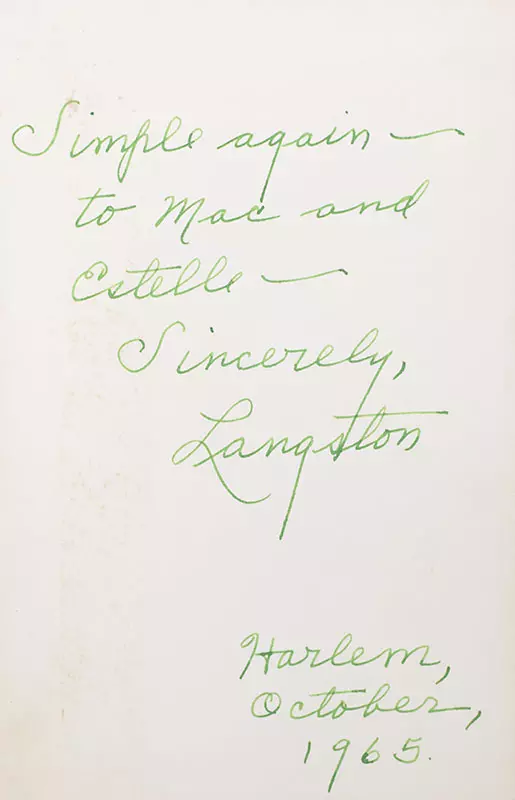 Simple again —
to Mac and
Estelle —
Sincerely,
Langston
Harlem,
October,
1965.